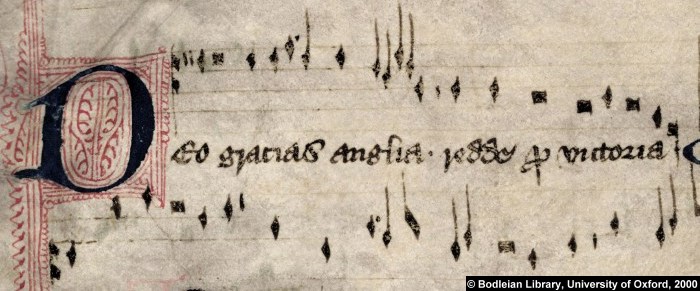 Deo gracias anglia · redde ꝓ victoria
© Bodleian Library, University of Oxford, 2000